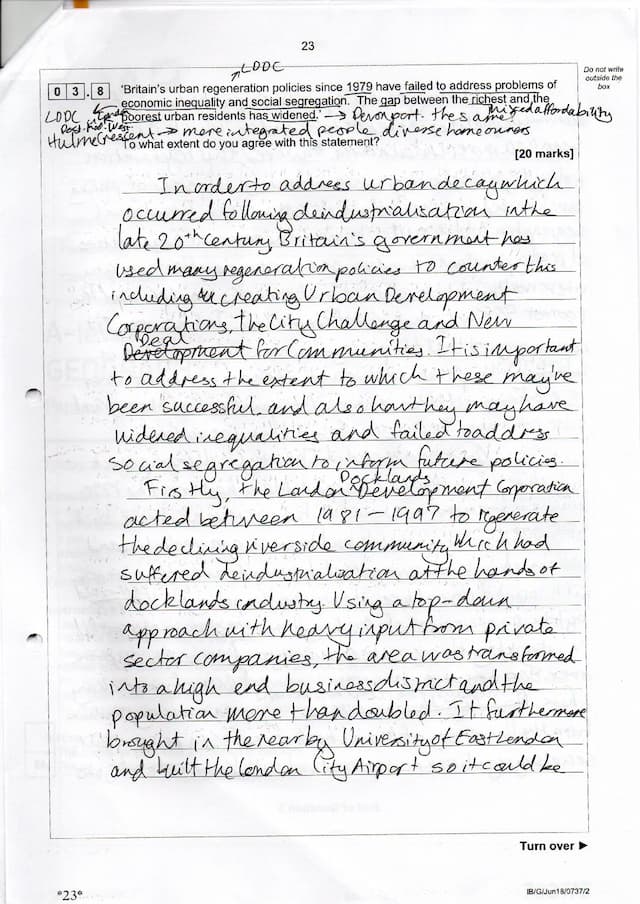 23
Do not write
outside the
box
LDDC
0 3 . 8 'Britain's urban regeneration policies since 1979 have failed to address problems of
economic inequality and social segregation. The gap between the richest and the
poorest urban residents has widened.' → Devonport. the same
Mixed affordability
LDDC
Hulme Crescent → more integrated people diverse homeowners
To what extent do you agree with this statement?
[20 marks]
In order to address urban decay which
occurred following deindustrialisation in the
late 20th Century, Britain's government has
used many regeneration policies to counter this
including creating Urban Development
Corporations, the City Challenge and New
Deal
Development for Communities. It is important
to address the extent to which these may've
been successful, and also how they may have
widened inequalities and failed to address
social segregation to inform future policies.
Firstly, the London Docklands Development Corporation
acted between 1981-1997 to regenerate
the declining riverside community which had
suffered deindustrialisation at the hands of
docklands industry. Using a top-down
approach with heavy input from private
sector companies, the area was transformed
into a high end business district and the
population more than doubled. It furthermore
brought in the nearby University of East London
and built the London City Airport so it could be
Turn over ►
*23*
IB/G/Jun18/0737/2